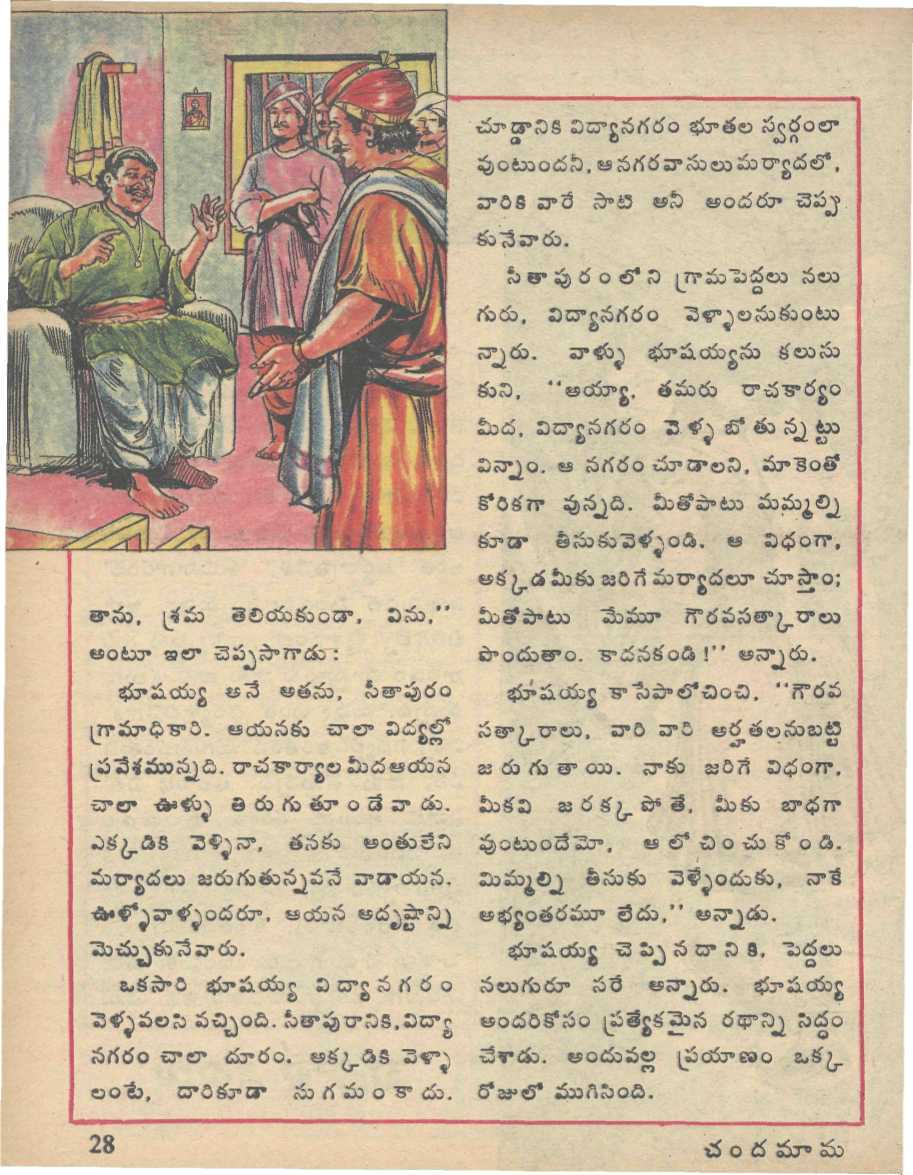 తాను, శ్రమ తెలియకుండా, విను,''
అంటూ ఇలా చెప్పసాగాడు:
భూషయ్య అనే అతను, సీతాపురం
గ్రామాధికారి. ఆయనకు చాలా విద్యల్లో
ప్రవేశమున్నది. రాచకార్యాలమీదఆయన
చాలా ఊళ్ళు తిరుగుతూండేవాడు.
ఎక్కడికి వెళ్ళినా, తనకు అంతులేని
మర్యాదలు జరుగుతున్నవనే వాడాయన.
ఊళ్ళోవాళ్ళందరూ, ఆయన అదృష్టాన్ని
మెచ్చుకునేవారు.
ఒకసారి భూషయ్య విద్యానగరం
వెళ్ళవలసి వచ్చింది. సీతాపురానికి,విద్యా
నగరం చాలా దూరం. అక్కడికి వెళ్ళా
లంటే, దారికూడా సుగమంకాదు.
చూడ్డానికి విద్యానగరం భూతల స్వర్గంలా
వుంటుందనీ, ఆనగరవాసులుమర్యాదలో,
వారికి వారే సాటి అనీ అందరూ చెప్పు
కునేవారు.
సీతాపురంలోని గ్రామపెద్దలు నలు
గురు, విద్యానగరం వెళ్ళాలనుకుంటు
న్నారు. వాళ్ళు భూషయ్యను కలుసు
కుని, ''అయ్యా, తమరు రాచకార్యం
మీద, విద్యానగరం వెళ్ళబోతున్నట్టు
విన్నాం. ఆ నగరం చూడాలని, మాకెంతో
కోరికగా వున్నది. మీతోపాటు మమ్మల్ని
కూడా తీసుకువెళ్ళండి. ఆ విధంగా,
అక్కడమీకు జరిగేమర్యాదలూ చూస్తాం;
మీతోపాటు మేమూ గౌరవసత్కారాలు
పొందుతాం. కాదనకండి!'' అన్నారు.
భూషయ్య కాసేపాలోచించి, ''గౌరవ
సత్కారాలు, వారి వారి అర్హతలనుబట్టి
జరుగుతాయి. నాకు జరిగే విధంగా,
మీకవి జరక్కపోతే, మీకు బాధగా
వుంటుందేమో, ఆలోచించుకోండి.
మిమ్మల్ని తీసుకు వెళ్ళేందుకు, నాకే
అభ్యంతరమూ లేదు,'' అన్నాడు.
భూషయ్య చెప్పినదానికి, పెద్దలు
నలుగురూ సరే అన్నారు. భూషయ్య
అందరికోసం ప్రత్యేకమైన రథాన్ని సిద్ధం
చేశాడు. అందువల్ల ప్రయాణం ఒక్క
రోజులో ముగిసింది.
28
చందమామ